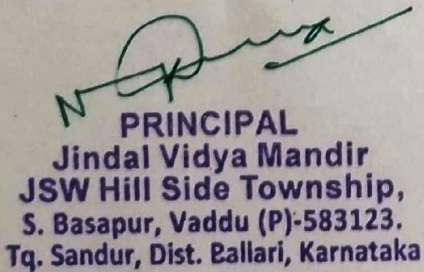 PRINCIPAL
Jindal Vidya Mandir
JSW Hill Side Township,
S. Basapur, Vaddu (P)-583123.
Tq. Sandur, Dist. Ballari, Karnataka